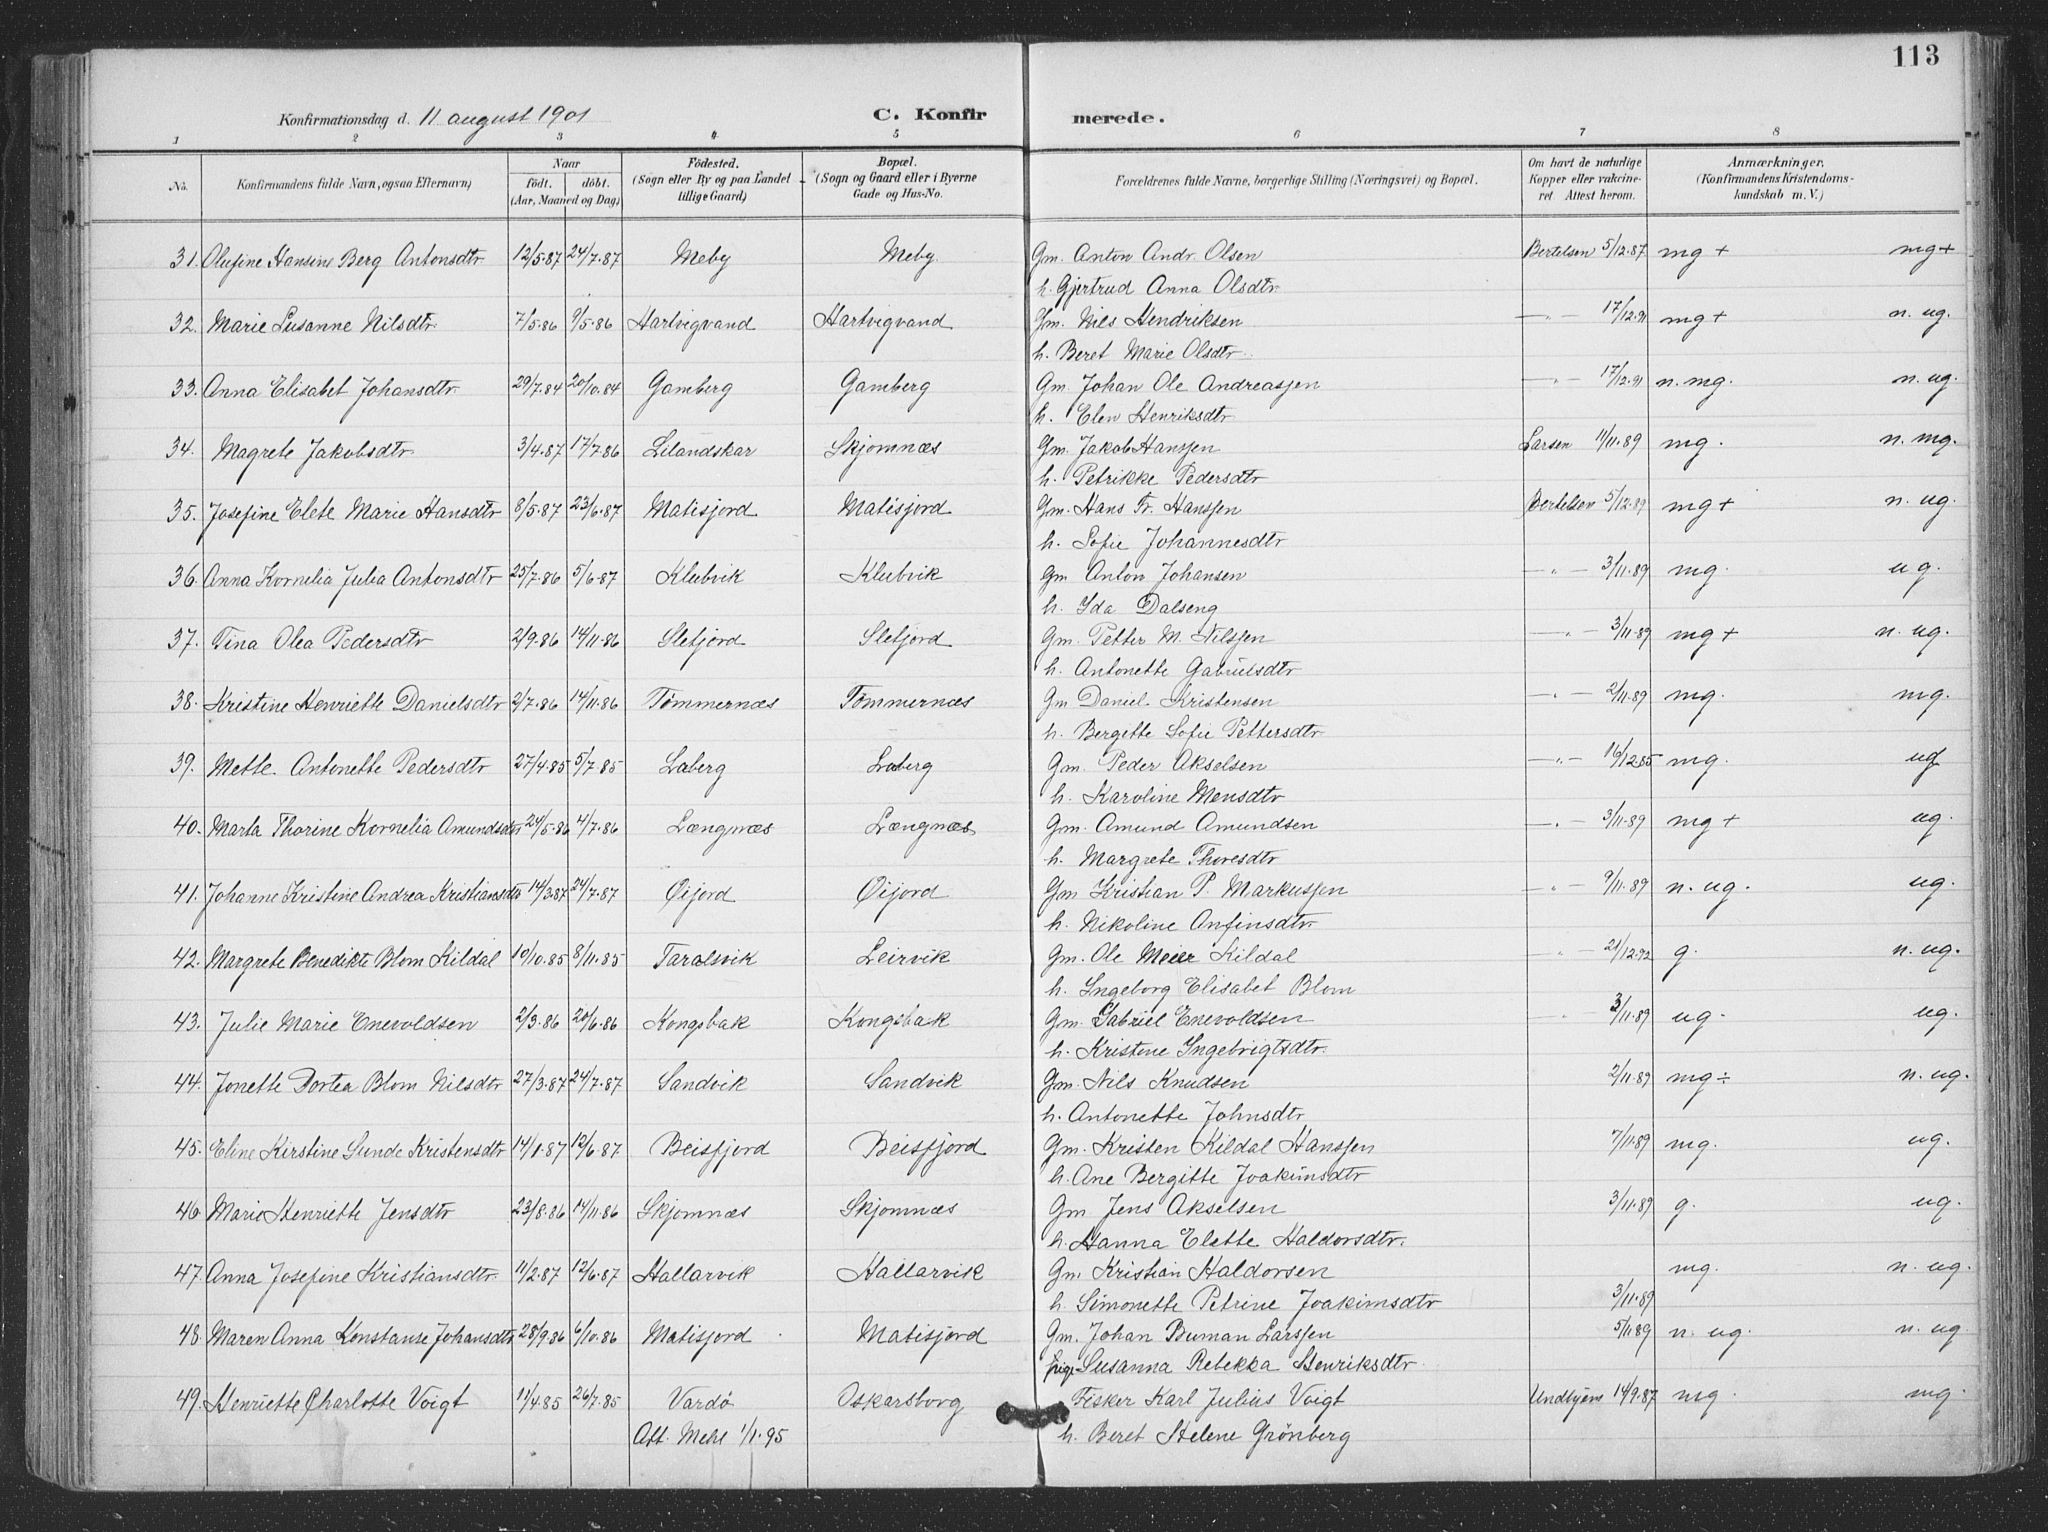 113
Konfirmationsdag d. 11 august 1901 C. Konfirmerede.
1 2 3 4 5 6 7 8
No. Konfirmandens fulde Navn, ogsaa Efternavn) Naar födt. döbt. (Aar, Maaned og Dag) Födested. (Sogn eller By og paa Landet tillige Gaard) Bopæl. (Sogn og Gaard eller i Byerne Gade og Hus-No. Forældrenes fulde Navne, borgerlige Stilling (Næringsvei) og Bopæl. Om havt de naturlige Kopper eller vakcineret Attest herom. Anmærkninger. (Konfirmandens Kristendomskundskab m. V.)
31. Olufine Hansine Berg Antonsdtr 12/5.87 24/7.87 Meby Meby. Gm. Anton Andr. Olsen Bertelsen 5/12.87 mg + mg+
h. Gjertrud Anna Olsdtr.
32. Marie Susanne Nilsdtr. 7/5.86 9/5.86 Hartvigvand Hartvigvand Gm. Nils Hendriksen —"— 17/12.91 mg + n. ug.
h. Beret Marie Olsdtr.
33. Anna Elisabet Johansdtr. 29/7.84 20/10.84 Gamberg Gamberg Gm. Johan Ole Andreassen —"— 17/12.91 n. mg. n. ug.
h. Elen Henriksdtr.
34. Magrete Jakobsdtr. 3/4.87 17/7.86 Lilandskar Skjomnæs Gm. Jakob Hanssen Larsen 11/11.89 mg. n. mg.
h. Petrikke Pedersdtr
35. Josefine Elete Marie Hansdtr 8/5.87 23/6.87 Matisjord Matisjord Gm. Hans Fr. Hanssen Bertelsen 5/12.89 mg + n. ug.
h. Sofie Johannesdtr
36. Anna Kornelia Julia Antonsdtr 25/7.86 5/6.87 Klubvik Klubvik Gm Anton Johansen —"— 3/11.89 mg. ug.
h. Ida Dalseng
37. Tina Olea Pedersdtr 2/9.86 14/11.86 Slefjord Slefjord Gm. Petter M. Nilssen —"— 3/11.89 mg + n. ug.
h. Antonette Gabrielsdtr
38. Kristine Henriette Danielsdtr 2/7.86 14/11.86 Tømmernæs Tømmernæs Gm Daniel Kristensen —"— 2/11.89 mg. mg.
h. Bergitte Sofie Pettersdtr.
39. Mette Antonette Pedersdtr 27/4.85 5/7.85 Laberg Laberg Gm. Peder Akselsen —"— 16/12.85 mg. ug
h. Karoline Monsdtr
40. Marta Thorine Kornelia Amundsdtr 24/5.86 4/7.86 Længnæs Længnæs Gm. Amund Amundsen —"— 3/11.89 mg + ug.
h. Margrete Thoresdtr
41. Johanne Kristine Andrea Kristiansdtr 14/3.87 24/7.87 Øijord Øijord Gm Kristian P. Markussen —"— 9/11.89 n. ug. ug.
h. Nikoline Anfinsdtr.
42. Margrete Benedikte Blom Kildal 10/10.85 8/11.85 Taralsvik Leirvik Gm. Ole Meier Kildal —"— 21/12.92 g. n. ug.
h. Ingeborg Elisabet Blom
43. Julie Marie Enevoldsen 2/3.86 20/6.86 Kongsbak Kongsbak Gm. Gabriel Enevoldsen —"— 3/11.89 ug. ug.
h. Kristine Ingebrigtsdtr.
44. Jonette Dortea Blom Nilsdtr 27/3.87 24/7.87 Sandvik Sandvik Gm. Nils Knudsen 2/11.89 mg÷ n. ug.
h. Antonette Johnsdtr
45. Eline Kirstine Sunde Kristensdtr 14/1.87 12/6.87 Beisfjord Beisfjord Gm. Kristen Kildal Hanssen 7/11.89 mg. ug.
h. Ane Bergitte Joakimsdtr
46. Marie Henriette Jensdtr 23/8.86 14/11.86 Skjomnæs Skjomnæs Gm Jens Akselsen 3/11.89 g. ug.
h. Hanna Elette Haldorsdtr.
47. Anna Josefine Kristiansdtr. 11/2.87 12/6.87 Hallarvik Hallarvik Gm Kristian Haldorsen mg. n. ug.
h. Simonette Petrine Joakimsdtr 3/11.89
48. Maren Anna Konstanse Johansdtr 28/9.86 6/10.86 Matisjord Matisjord Gm. Johan Buman Larssen 5/11.89 n. ug. n. ug.
Susanna Rebekka Henriksdtr.
49. Henriette Charlotte Voigt 11/4.85 26/7.85 Vardø Oskarsborg Fisker Karl Julius Voigt 14/9.87 mg. mg.
Att. Mehl 1/1.95 h. Beret Helene Grönberg